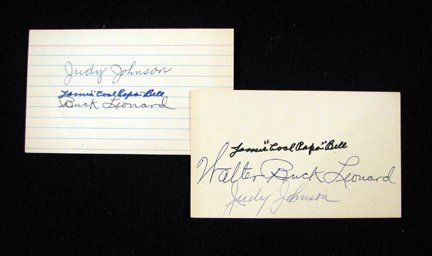 Judy Johnson
James "Cool Papa" Bell
Buck Leonard
James "Cool Papa" Bell
Walter Buck Leonard
Judy Johnson